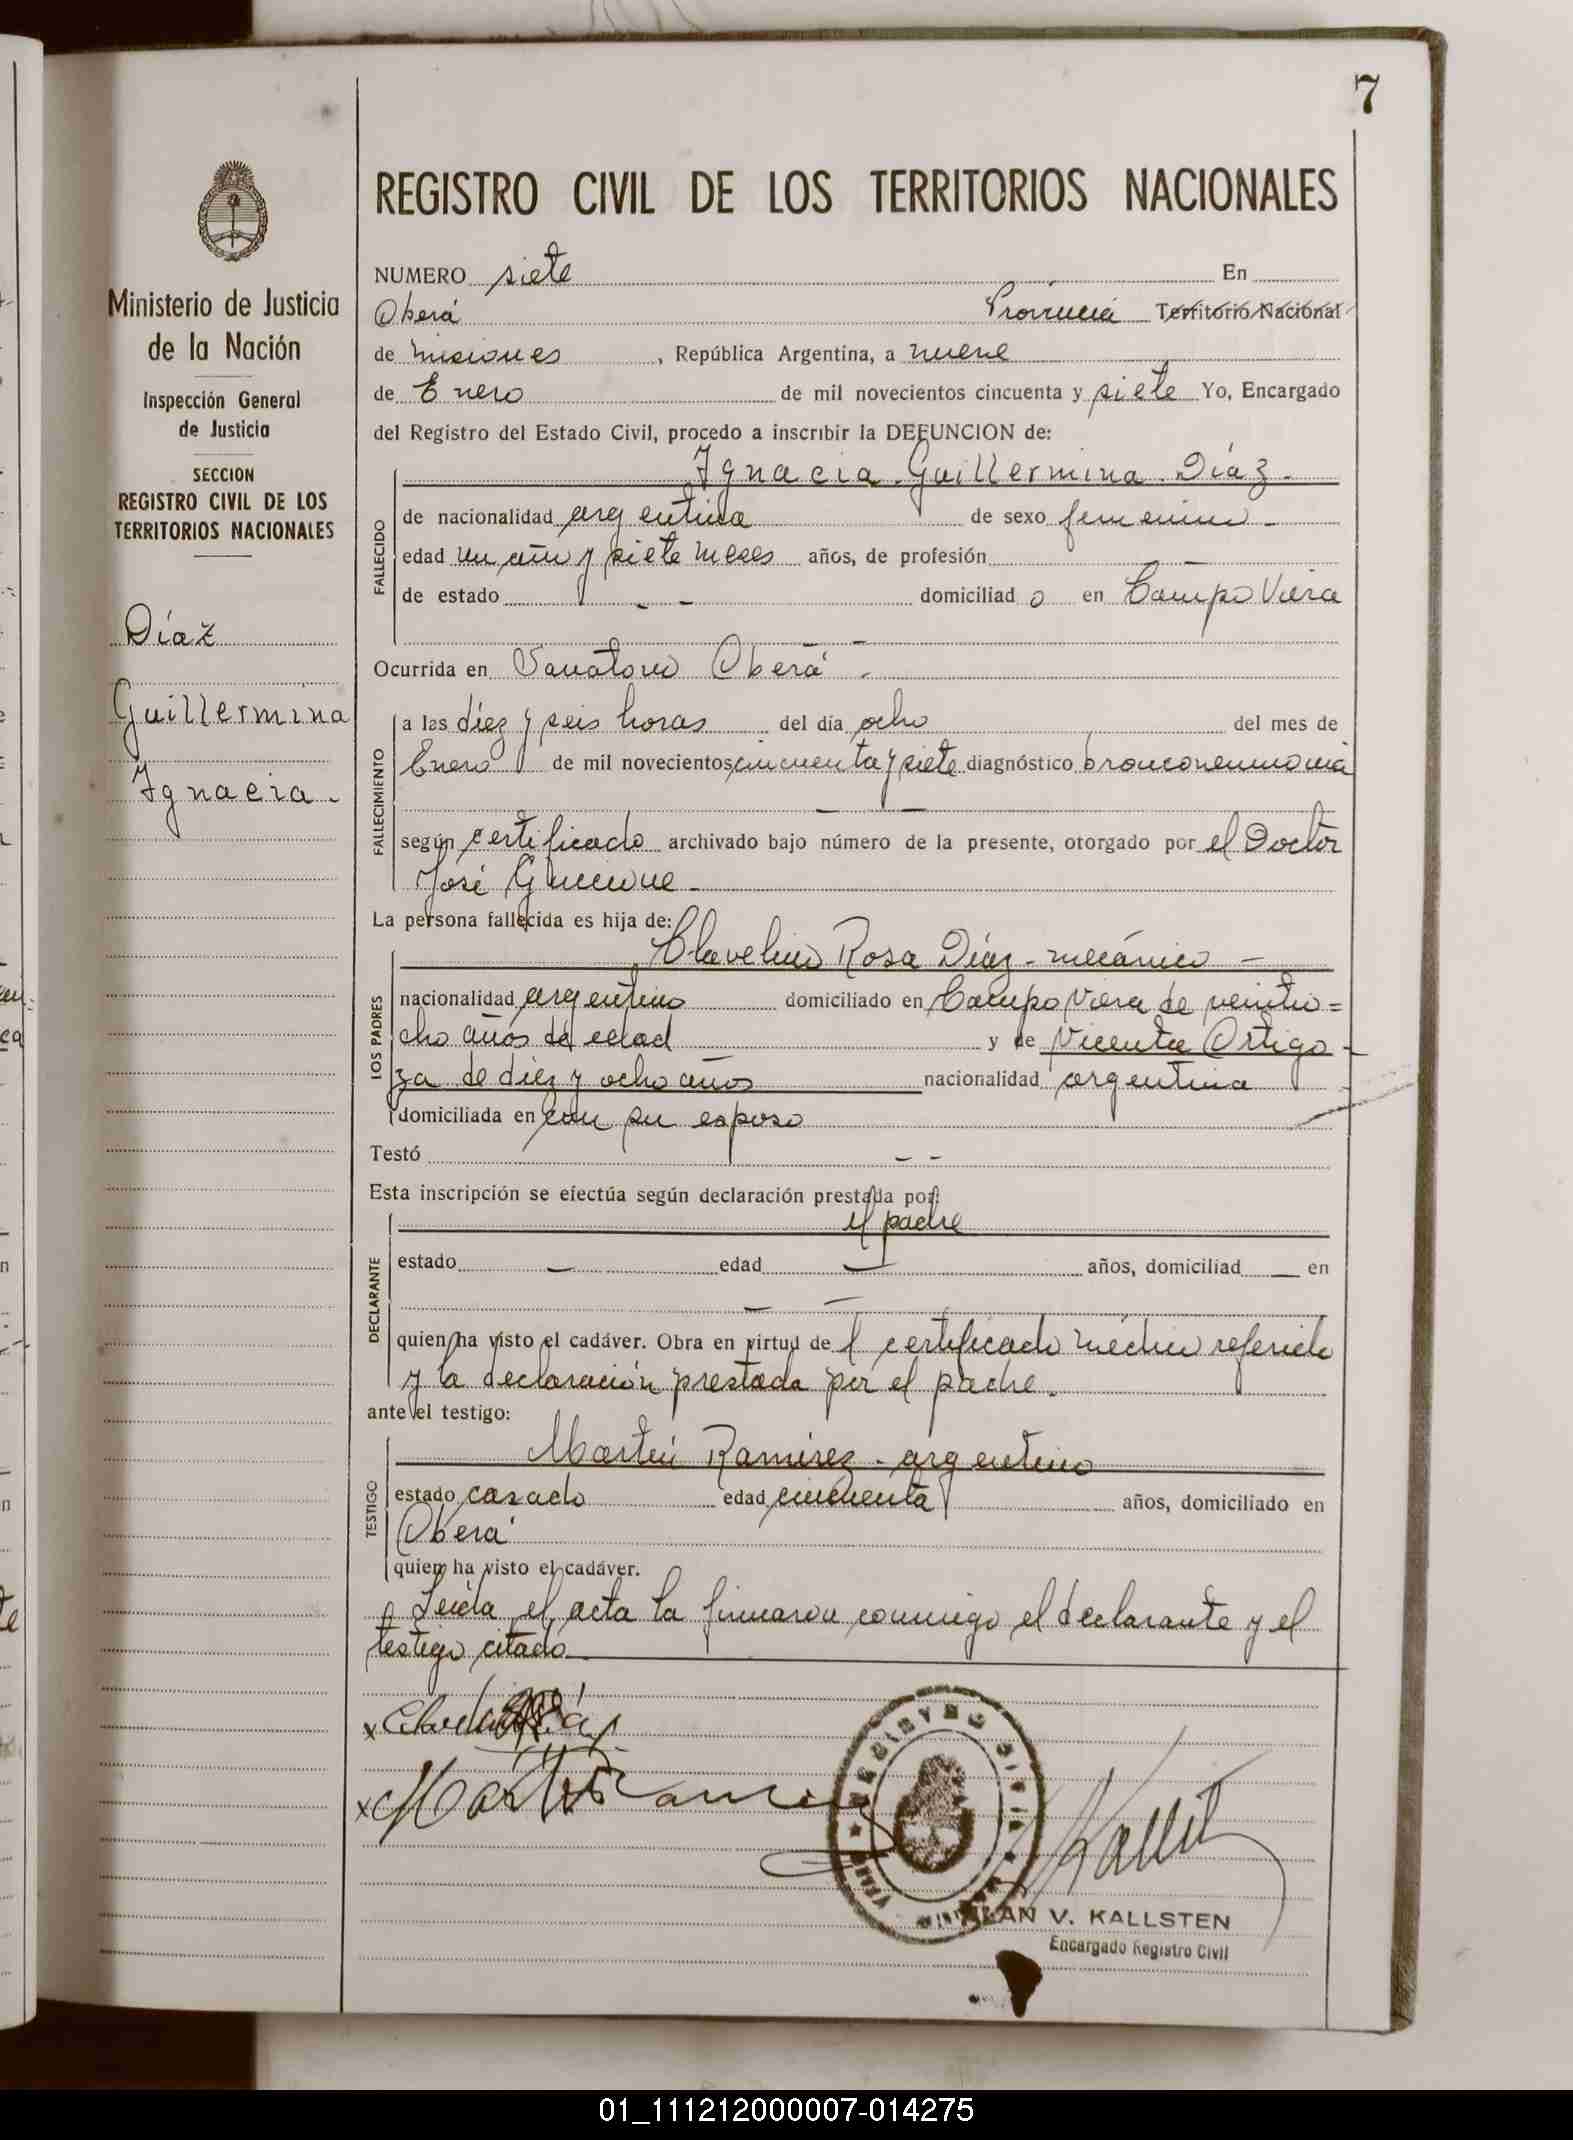 7
REGISTRO CIVIL DE LOS TERRITORIOS NACIONALES
Ministerio de Justicia
de la Nación
Inspección General
de Justicia
SECCION
REGISTRO CIVIL DE LOS
TERRITORIOS NACIONALES
Díaz
Guillermina
Ignacia.-
NUMERO siete En
Oberá Provincia Territorio Nacional
de Misiones, República Argentina, a nueve
de Enero de mil novecientos cincuenta y siete Yo, Encargado
del Registro del Estado Civil, procedo a inscribir la DEFUNCION de:
Ignacia Guillermina Díaz.-
FALLECIDO
de nacionalidad argentina de sexo femenino.-
edad un año y siete meses años, de profesión
de estado - - domiciliado en Campo Viera
Ocurrida en Sanatorio Oberá.-
FALLECIMIENTO
a las diez y seis horas del día ocho del mes de
Enero de mil novecientos cincuenta y siete diagnóstico bronconeumonia
según certificado archivado bajo número de la presente, otorgado por el Doctor
José.-
La persona fallecida es hija de:
LOS PADRES
Clavelino Rosa Díaz - mecánico -
nacionalidad argentino domiciliado en Campo Viera de veintio=
cho años de edad y de Vicenta Ortigo-
za de diez y ocho años nacionalidad argentina
domiciliada en con su esposo
Testó - -
Esta inscripción se efectúa según declaración prestada por:
DECLARANTE
el padre
estado - edad - años, domiciliad - en
- -
quien ha visto el cadáver. Obra en virtud del certificado médico referido
y la declaración prestada por el padre.
ante el testigo:
TESTIGO
Martín Ramirez - argentino
estado casado edad cincuenta años, domiciliado en
Oberá
quien ha visto el cadáver.
Leída el acta la firmaron conmigo el declarante y el
testigo citado
x
x Martin Ramirez
REGISTRO CIVIL
ALAN V. KALLSTEN
Encargado Registro Civil
01_111212000007-014275